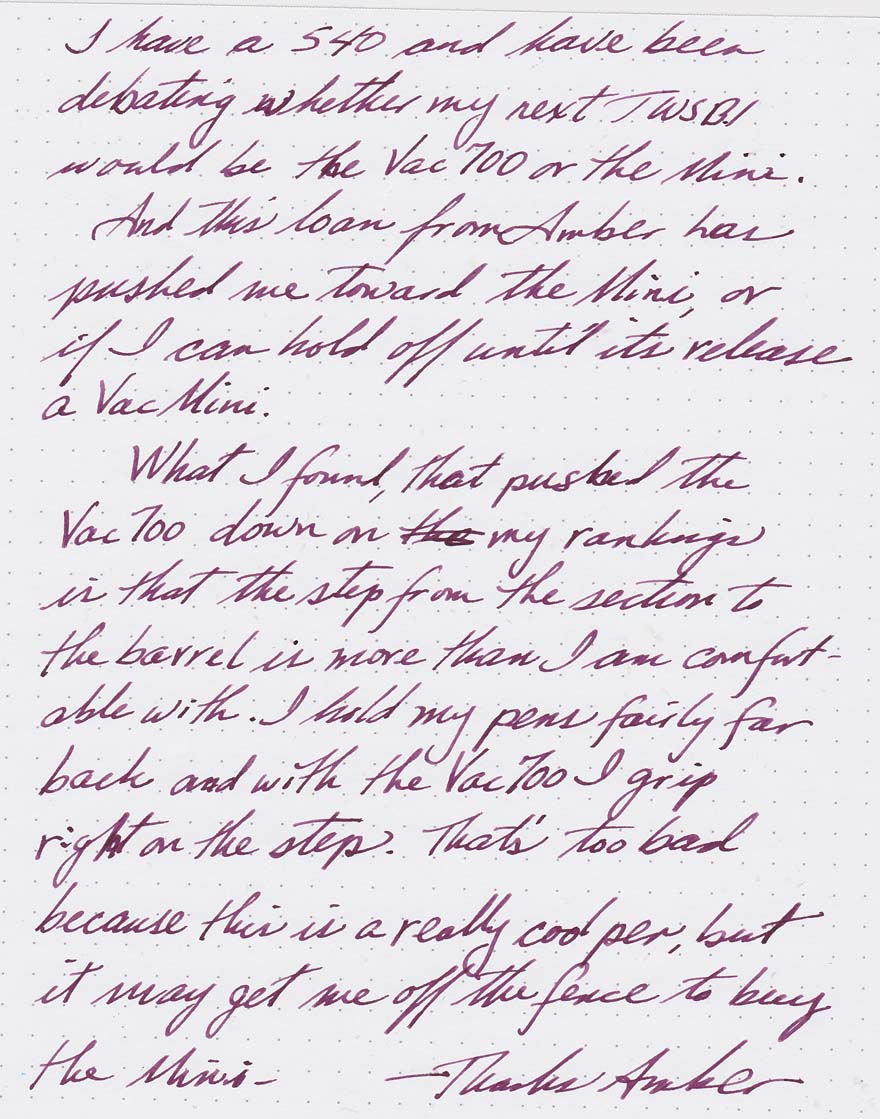 I have a 540 and have been
debating whether my next TWSBI
would be the Vac 700 or the Mini.
And this loan from Amber has
pushed me toward the Mini, or
if I can hold off until its release
a Vac Mini.
What I found, that pushed the
Vac 700 down on the my rankings
is that the step from the section to
the barrel is more than I am comfort-
able with. I hold my pens fairly far
back and with the Vac 700 I grip
right on the step. That's too bad
because this is a really cool pen, but
it may get me off the fence to buy
the Mini-
—Thanks Amber